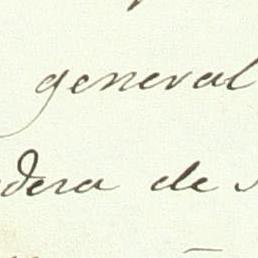 general
dera de